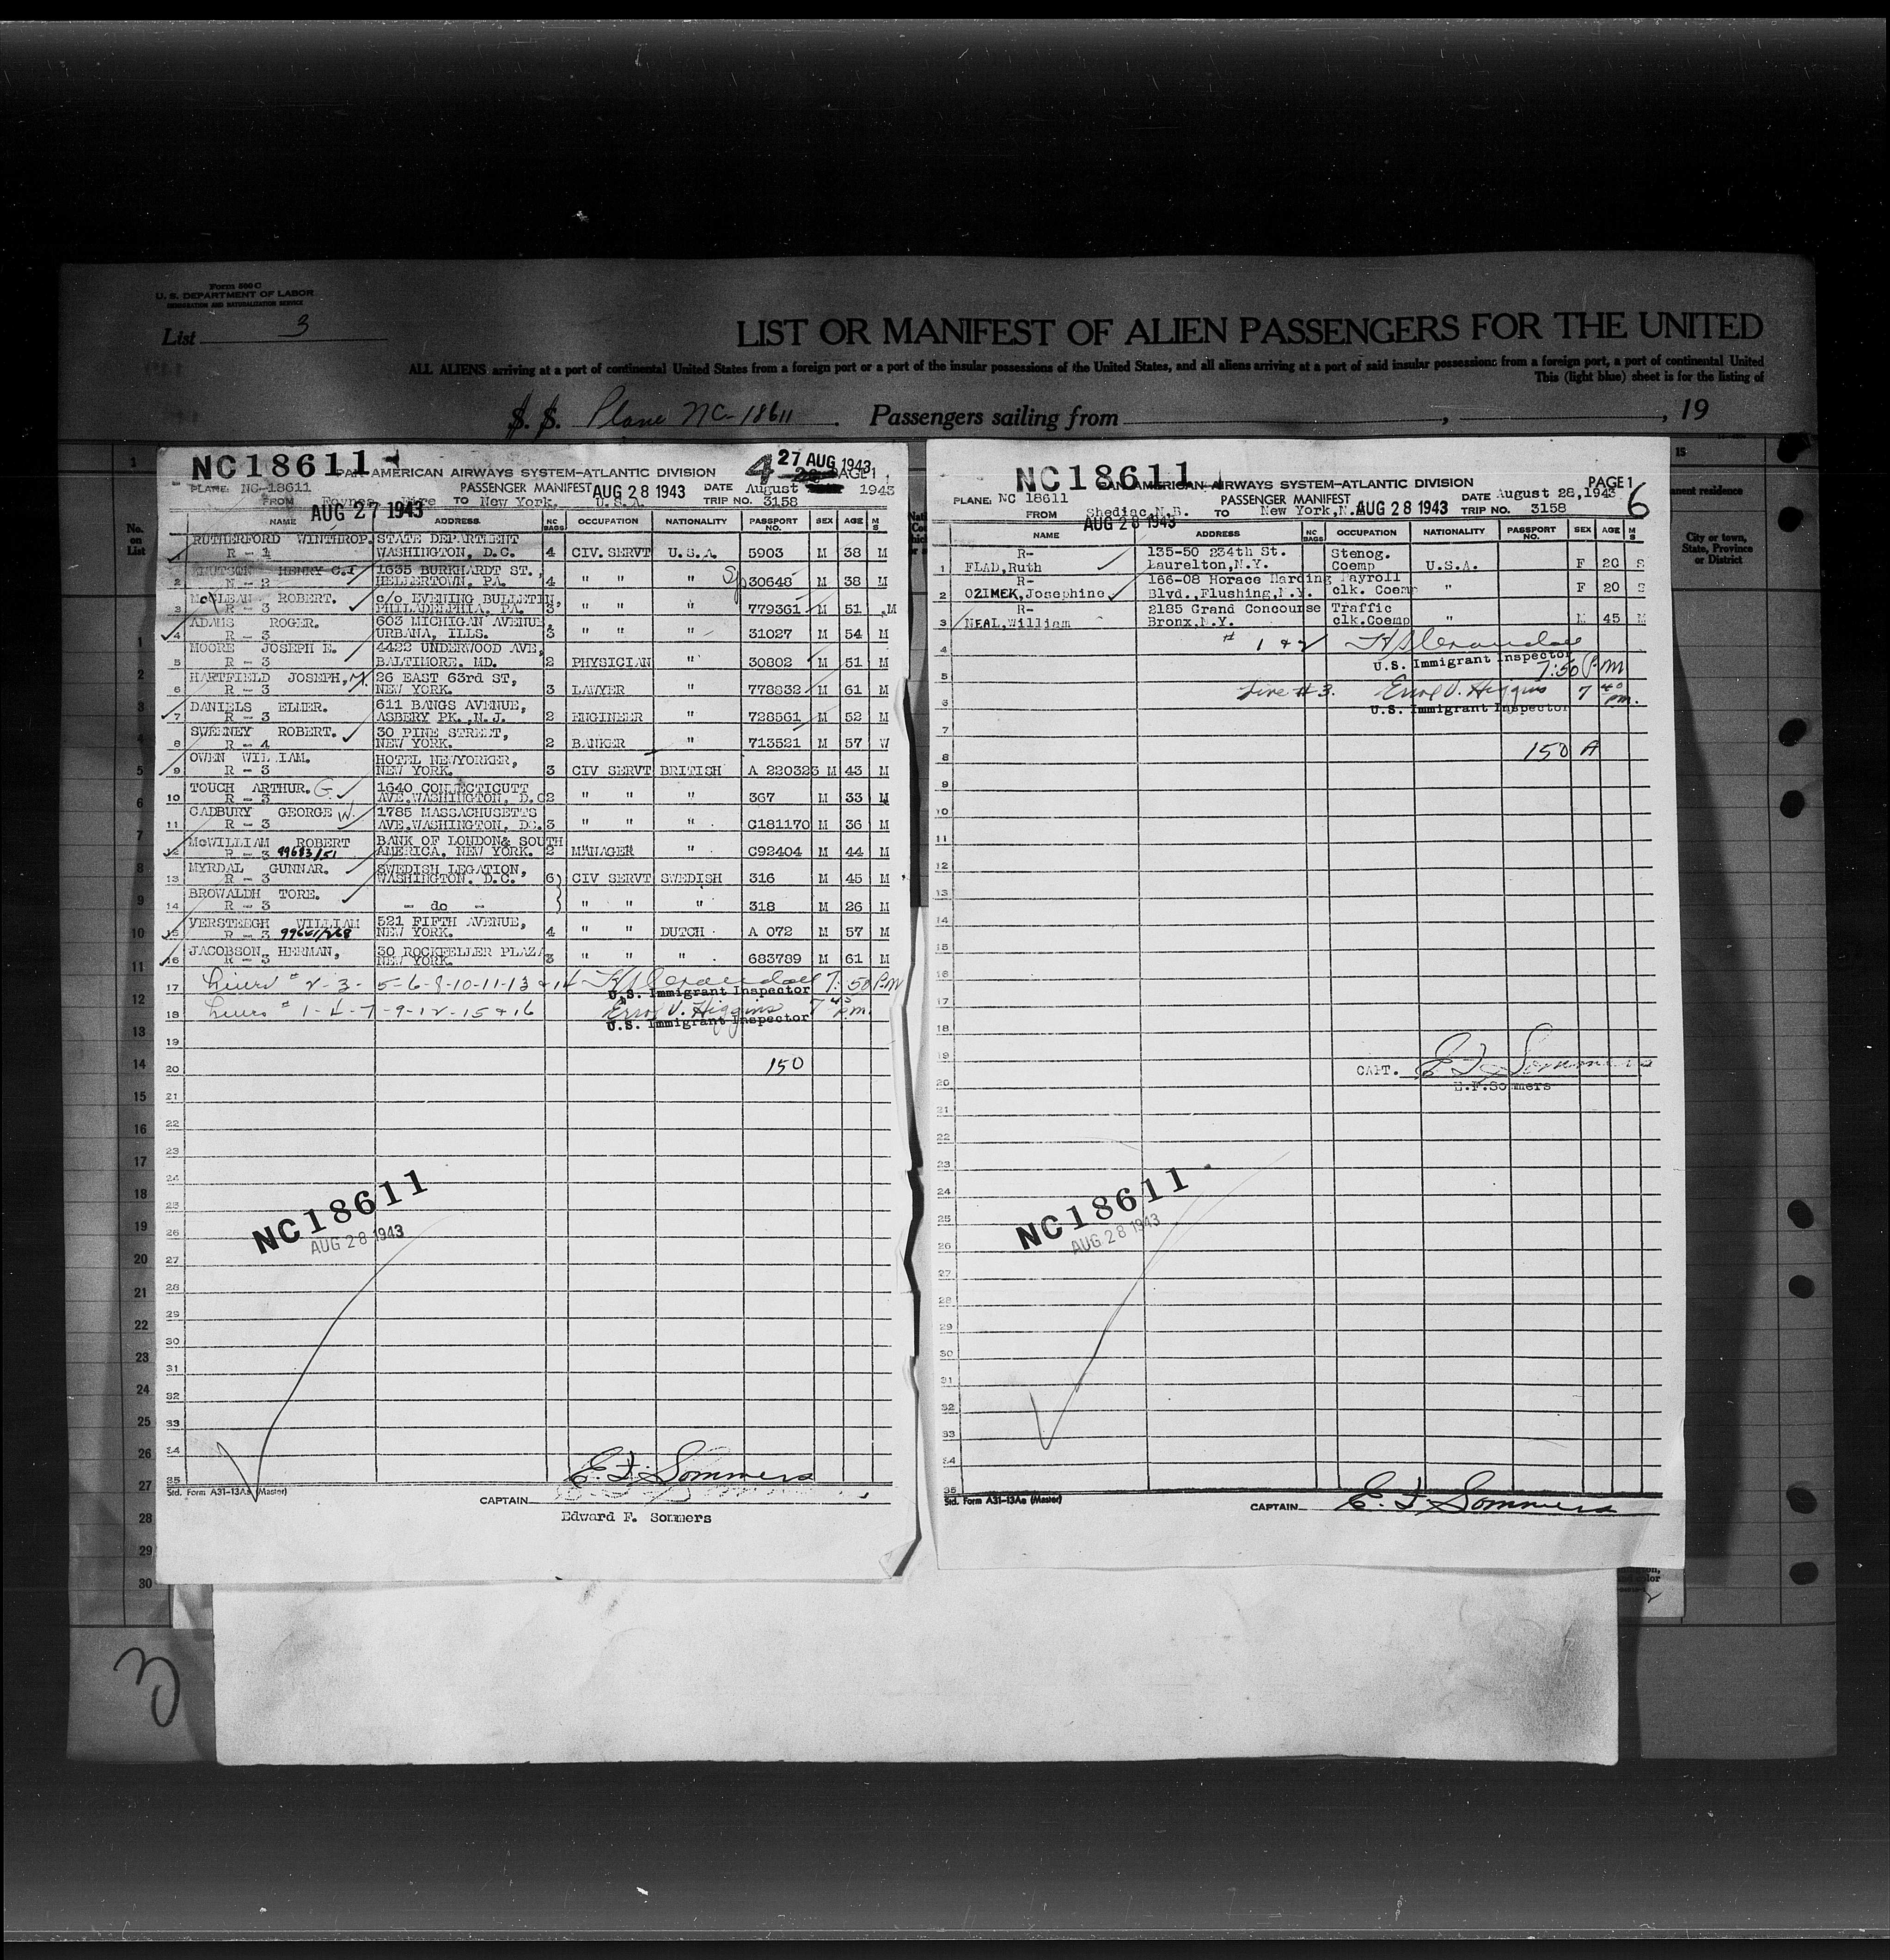 Form 500 C
U. S. DEPARTMENT OF LABOR
IMMIGRATION AND NATURALIZATION SERVICE
List 3
LIST OR MANIFEST OF ALIEN PASSENGERS FOR THE UNITED
ALL ALIENS arriving at a port of continental United States from a foreign port or a part of the insular possessions of the United States, and all aliens arriving at a port of said insular possessions from a foreign port, a part of continental United
This (light blue) sheet is for the listing of
S. S. Plane NC-18611. Passengers sailing from , , 19
NC18611
PAN AMERICAN AIRWAYS SYSTEM—ATLANTIC DIVISION 4 27 AUG 1943 PAGE 1
PLANE: NC-18611 PASSENGER MANIFEST AUG 28 1943 DATE August 1943
FROM Foynes, Eire TO New York. U.S.A. TRIP NO. 3158
AUG 27 1943
NAME ADDRESS NC BAGS OCCUPATION NATIONALITY PASSPORT NO. SEX AGE M S
RUTHERFORD WINTHROP. STATE DEPARTMENT
1 R - 1 WASHINGTON, D.C. 4 CIV. SERVT U.S.A. 5903 M 38 M
KNUTSON HENRY C. 1635 BURKHARDT ST.,
2 N - 2 HELLERTOWN. PA. 4 " " " 30648 M 38 M
McLEAN ROBERT. c/o EVENING BULLETIN,
3 R - 3 PHILADELPHIA. PA. 3 " " " 779361 M 51 M
ADAMS ROGER. 603 MICHIGAN AVENUE,
4 R - 3 URBANA, ILLS. 3 " " " 31027 M 54 M
MOORE JOSEPH E. 4422 UNDERWOOD AVE,
5 R - 3 BALTIMORE. MD. 2 PHYSICIAN " 30802 M 51 M
HARTFIELD JOSEPH, M. 26 EAST 63rd ST,
6 R - 3 NEW YORK. 3 LAWYER " 778832 M 61 M
DANIELS ELMER. 611 BANGS AVENUE,
7 R - 3 ASBERY PK., N.J. 2 ENGINEER " 728561 M 52 M
SWEENEY ROBERT. 30 PINE STREET,
8 R - 4 NEW YORK. 2 BANKER " 713521 M 57 W
OWEN WILLIAM. HOTEL NEWYORKER,
9 R - 3 NEW YORK. 3 CIV SERVT BRITISH A 220323 M 43 M
TOUCH ARTHUR. G. 1640 CONNECTICUTT
10 R - 3 AVE.WASHINGTON, D.C 2 " " " 367 M 33 M
CADBURY GEORGE W. 1785 MASSACHUSETTS
11 R - 3 AVE.WASHINGTON, DC. 3 " " " C181170 M 36 M
McWILLIAM ROBERT BANK OF LONDON& SOUTH
12 R - 3 99683/51 AMERICA, NEW YORK. 2 MANAGER " C92404 M 44 M
MYRDAL GUNNAR. SWEDISH LEGATION,
13 R - 3 WASHINGTON. D.C. 6 CIV SERVT SWEDISH 316 M 45 M
BROWALDH TORE.
14 R - 3 - do - " " " 318 M 26 M
VERSTEEGH WILLIAM 521 FIFTH AVENUE,
15 R - 3 NEW YORK. 4 " " DUTCH A 072 M 57 M
JACOBSON HERMAN, 30 ROCKFELLER PLAZA
16 R - 3 NEW YORK. 3 " " " 683789 M 61 M
17 Lines # 2-3-5-6-8-10-11-13 & 14 7:50 P.M
U.S. Immigrant Inspector
18 Lines # 1-4-7-9-12-15 & 16 Errol V. Higgins 7 45 p.m.
U.S. Immigrant Inspector
19
20 150
21
22
23
24
25
26
27
28
29
30
31
32
33
34
35
NC18611
AUG 28 1943
Std. Form A31-13Aa (Master)
CAPTAIN E. F. Sommers
Edward F. Sommers
NC18611
PAN AMERICAN AIRWAYS SYSTEM—ATLANTIC DIVISION
PLANE: NC 18611 PASSENGER MANIFEST DATE August 28,1943 PAGE 1 6
FROM Shediac,N.B. TO New York,N. AUG 28 1943 TRIP NO. 3158
AUG 28 1943
NAME ADDRESS NC BAGS OCCUPATION NATIONALITY PASSPORT NO. SEX AGE M S
R- 135-50 234th St. Stenog.
1 FLAD,Ruth Laurelton,N.Y. Coemp U.S.A. F 20 S
R- 166-08 Horace Harding Payroll
2 OZIMEK,Josephine Blvd.,Flushing,N.Y. clk. Coemp " F 20 S
R- 2185 Grand Concourse Traffic
3 NEAL,William Bronx,N.Y. clk.Coemp " M 45 M
4 # 1 & 2
U.S. Immigrant Inspector
5 7:50 P.M
6 Line # 3. Errol V. Higgins 7 40 pm.
U.S. Immigrant Inspector
7
8 150 A
9
10
11
12
13
14
15
16
17
18
19 CAPT. E F Sommers
20 E.F.Sommers
21
22
23
24
25
26
27
28
29
30
31
32
33
34
35
NC18611
AUG 28 1943
Std. Form A31-13Aa (Master)
CAPTAIN E. F Sommers
No. on List
1
2
3
4
5
6
7
8
9
10
11
12
13
14
15
16
17
18
19
20
21
22
23
24
25
26
27
28
29
30
15
anent residence
City or town, State, Province or District
3